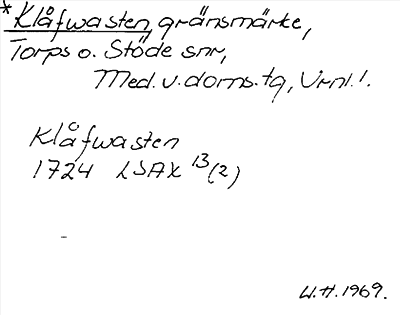 *Klåfwasten, gränsmärke,
Torps o. Stöde snr,
Med. v. doms. tg, Vrnl.!.
Klåfwasten
1724 LSAX 13(2)
U.H. 1969.